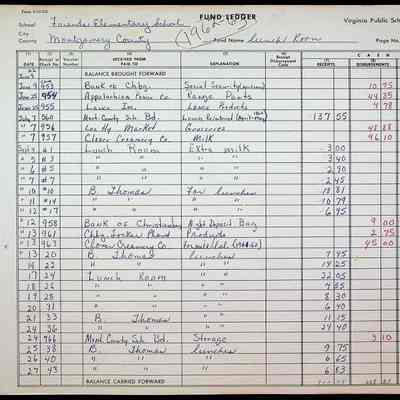 School Friends Elementary School FUND LEDGER Virginia Public Sch
City
County Montgomery County (1962-63) Fund Name Lunch Room Page No.
(1) (2) (3) (4) (5) (6) (7) (8)
C A S H
DATE Receipt or Check No. Voucher Number RECEIVED FROM PAID TO EXPLANATION RECEIPTS DISBURSEMENTS
BALANCE BROUGHT FORWARD
June 9 953 Bank of Chbg. Social Security 10 95
June 25 954 Appalachian Power Co. Range Parts 44 35
June 25 955 Lance Inc. Lance Products 4 78
July 7 560 Mont County Sch. Bd. Lunch Reimbursed 137 55
" 7 956 Lee Hy Market Groceries 48 88
" 7 957 Clover Creamery Co. Milk 96 10
Sept 4 #1 Lunch Room Extra milk 3 00
" 5 #3 " " " " 3 40
" 6 #5 " " " " 2 90
" 7 #7 " " " " 2 45
" 10 #10 B. Thomas For lunches 18 81
" 11 #14 " " " " 10 79
" 12 #17 " " " " 6 95
" 12 958 Bank of Christiansburg Night Deposit Bag 9 00
" 13 961 Chbg. Locker Plant Products 2 75
" 13 963 Clover Creamery Co. 45 00
" 13 20 B. Thomas lunches 7 95
14 22 " " " 14 25
17 24 Lunch Room " " 22 05
18 26 " " " " 7 85
19 28 " " 8 30
20 31 " " " " 6 40
21 33 B. Thomas " " 11 15
24 36 " " " " 24 40
24 966 Mont County Sch. Bd. Storage 3 10
25 38 B. Thomas lunches 9 75
26 40 " " " 6 65
27 43 " " " " 6 83
BALANCE CARRIED FORWARD